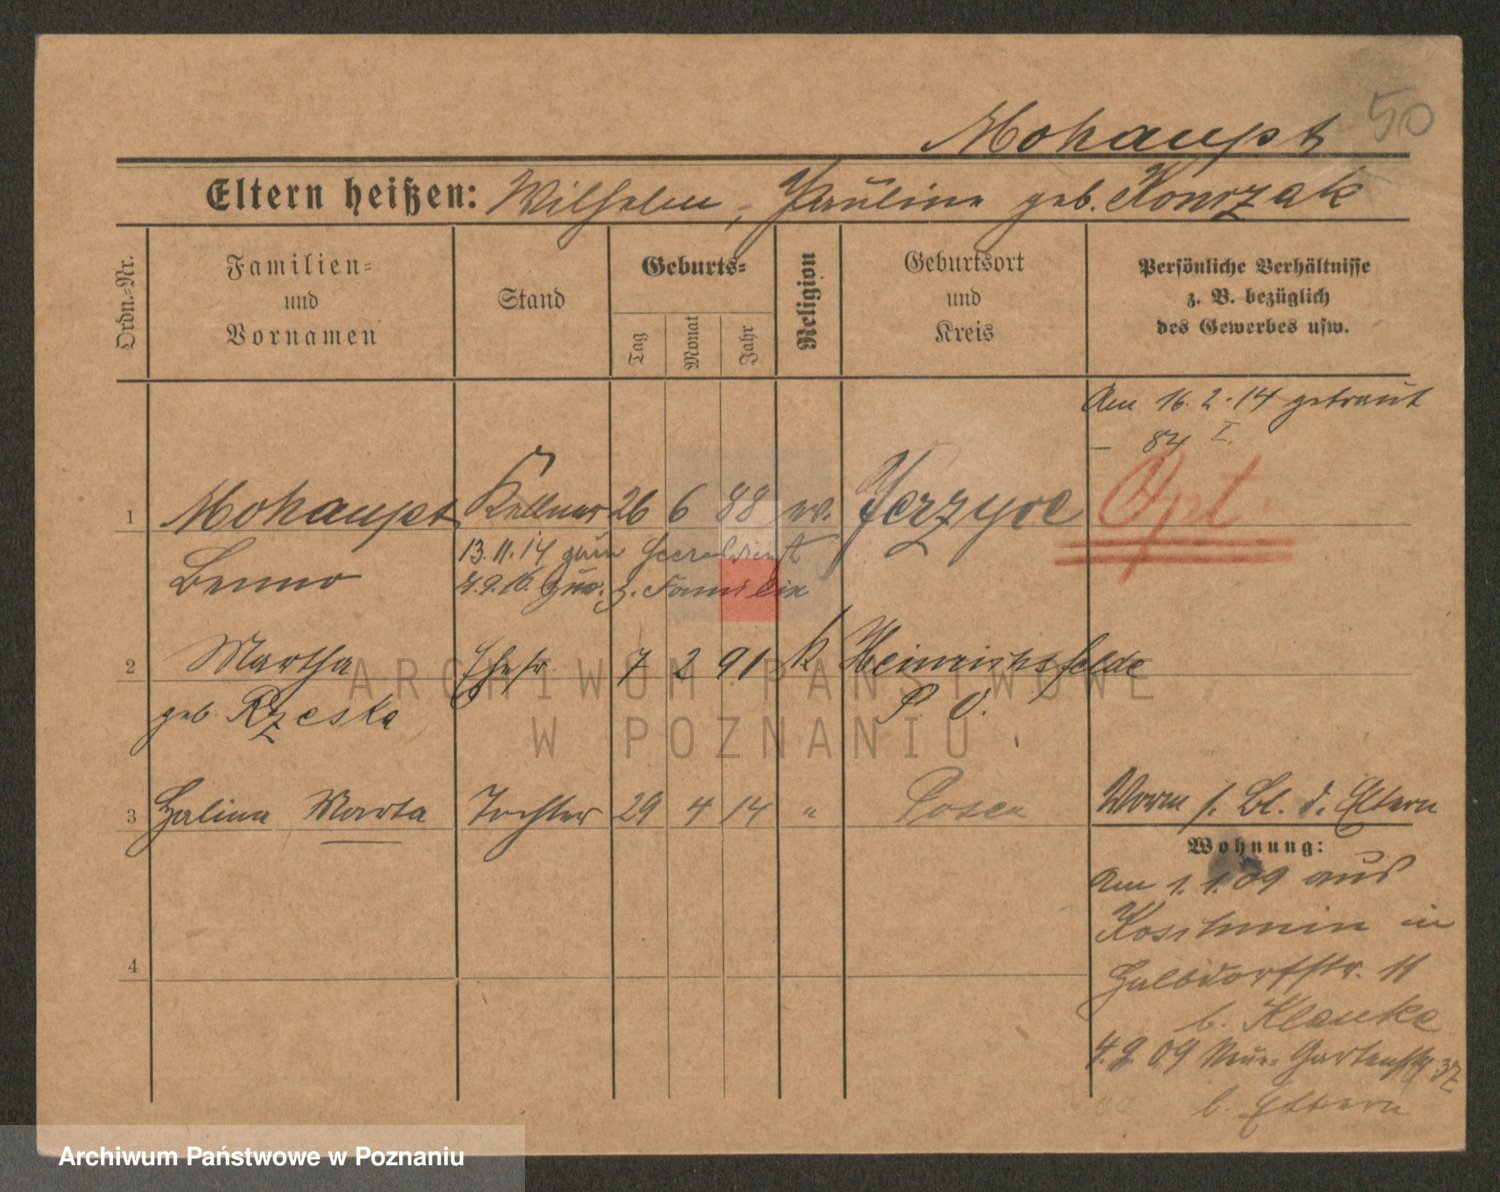 50
Mohaupt
Eltern heißen: Wilhelm, Pauline geb. Konrzak
Ordn.-Nr.
Familien-
und
Vornamen
Stand
Geburts-
Tag
Monat
Jahr
Religion
Geburtsort
und
Kreis
Persönliche Verhältnisse
z. B. bezüglich
des Gewerbes usw.
Am 16.2.14 getraut
- 84 I.
1 Mohaupt Kellner 26 6 88 ev. Jerzyce Opt.
Benno 13.11.14 zum Heeresdienst
zur. z. Familie
2 Martha Ehefr. 7 2 91 k Heinrichsfelde
geb. Rzeska P. O.
3 Halina Marta Tochter 29 4 14 " Posen Worm s. Bl. d. Eltern
Wohnung:
Am 1.1.09 aus
Koschmin in
4 Halbdorfstr. 11
b. Klauke
4.9.09 Neue Gartenstr 37
b. Eltern
ARCHIWUM PAŃSTWOWE
W POZNANIU
Archiwum Państwowe w Poznaniu